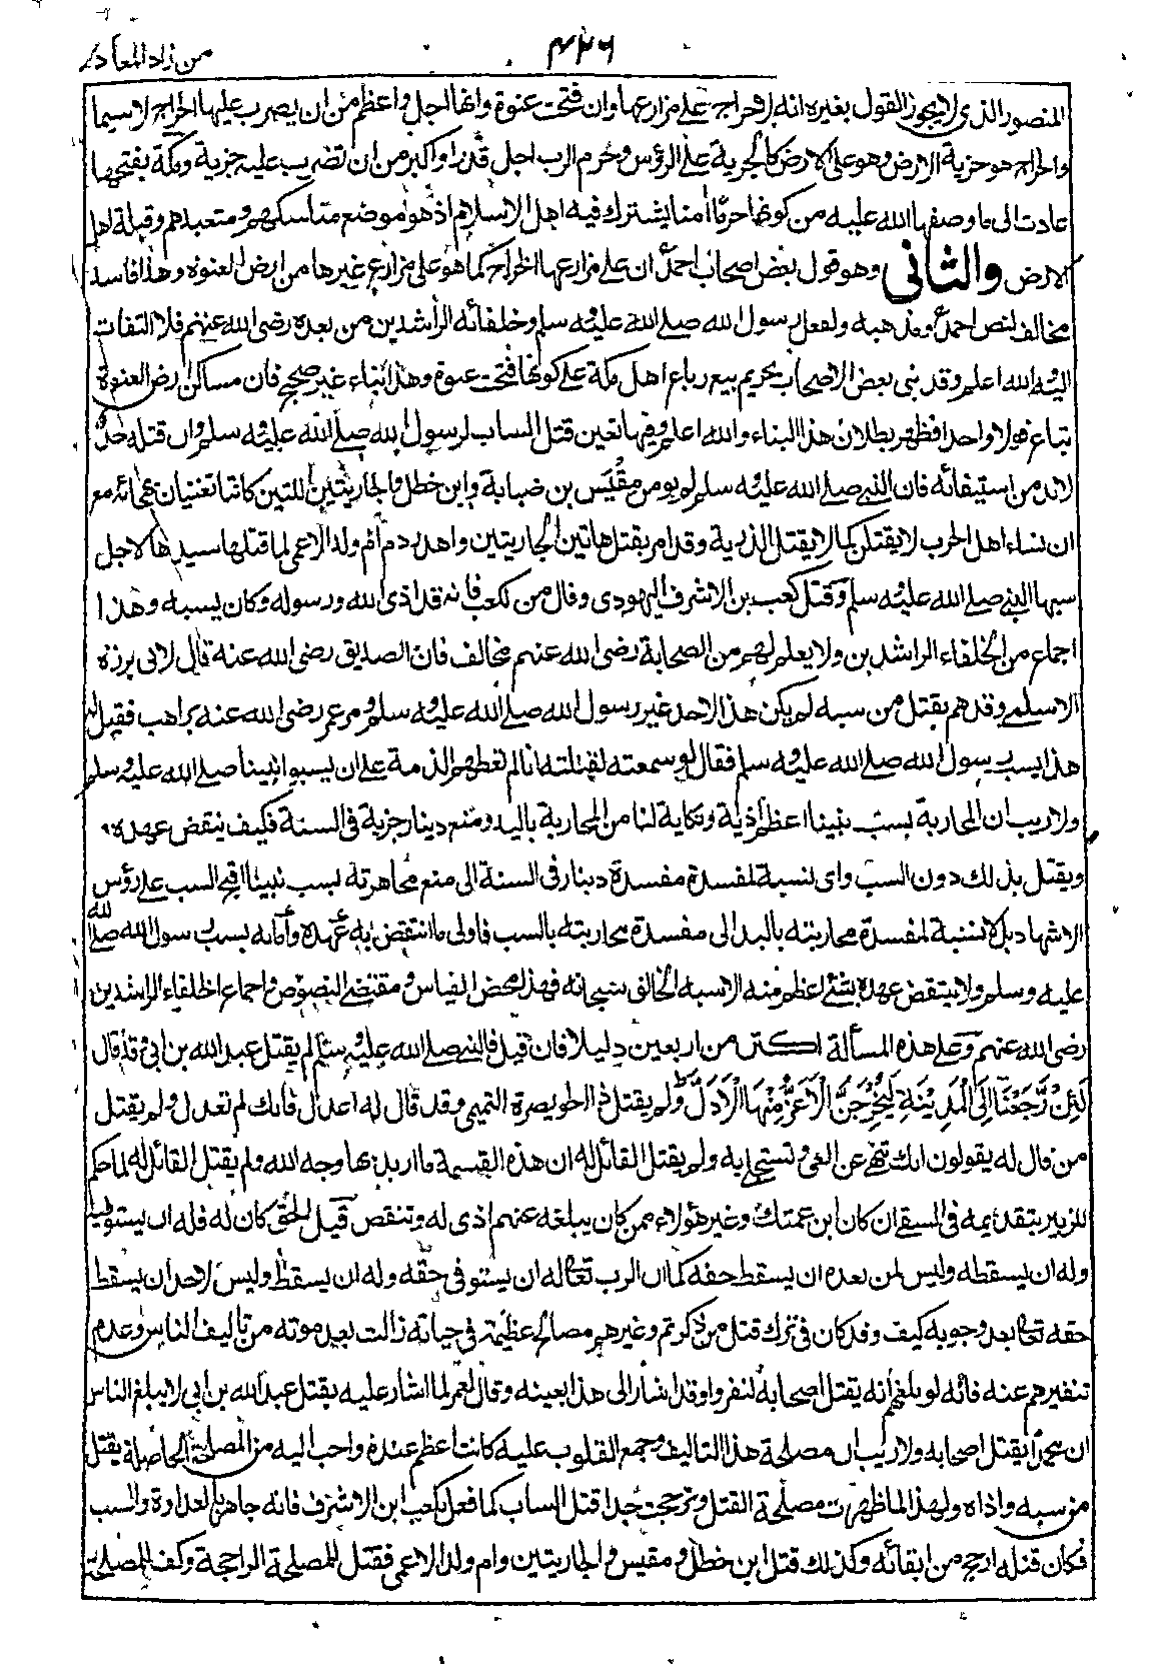 ٤٢٦
من زاد المعاد
المنصور الذى لا يجوز القول بغيره انه لا خراج على مزارعها وان فتحت عنوة وانها اجل واعظم من ان يضرب عليها الخراج لاسيما
والخراج هو جزية الارض وهو على الارض كالجزية على الرؤس وحرم الرب اجل قدرا واكبر من ان تضرب عليه جزية ومكة بفتحها
عادت الى ما وصفها الله عليه من كونها حرما امنا يشترك فيه اهل الاسلام اذ هو موضع مناسكهم ومتعبدهم وقبلة اهل
الارض والثانى وهو قول بعض اصحاب احمد ان على مزارعها الخراج كما هو على مزارع غيرها من ارض العنوة وهذا فاسد
مخالف لنص احمد ومذهبه ولفعل رسول الله صلى الله عليه وسلم وخلفائه الراشدين من بعده رضى الله عنهم فلا التفات
اليه والله اعلم وقد بنى بعض الاصحاب تحريم بيع رباع اهل مكة على كونها فتحت عنوة وهذا بناء غير صحيح فان مساكن ارض العنوة
تباع قولا واحدا فظهر بطلان هذا البناء والله اعلم وفيها تعين قتل الساب لرسول الله صلى الله عليه وسلم وان قتله حد
لابد من استيفائه فان النبى صلى الله عليه وسلم لم يومن مقيس بن ضبابة وابن خطل والجاريتين اللتين كانتا تغنيان بهجائه مع
ان نساء اهل الحرب لا يقتلن كما لا يقتل الذرية وقد امر بقتل هاتين الجاريتين واهدر دم ام ولد الاعمى لما قتلها سيدها لاجل
سبها النبى صلى الله عليه وسلم وقتل كعب بن الاشرف اليهودى وقال من لكعب فانه قد اذى الله ورسوله وكان يسبه وهذا
اجماع من الخلفاء الراشدين ولا يعلم لهم من الصحابة رضى الله عنهم مخالف فان الصديق رضى الله عنه قال لابى برزة
الاسلمى وقد هم بقتل من سبه لم يكن هذا لاحد غير رسول الله صلى الله عليه وسلم ومر عمر رضى الله عنه براهب فقيل له
هذا يسب رسول الله صلى الله عليه وسلم فقال لو سمعته لقتلته انا لم نعطهم الذمة على ان يسبوا نبينا صلى الله عليه وسلم
ولا ريب ان المحاربة بسب نبينا اعظم اذية ونكاية لنا من المحاربة باليد ومنع دينار جزية فى السنة فكيف ينقض عهده
ويقتل بذلك دون السب واى نسبة لمفسدة مفسدة دينار فى السنة الى منع مجاهرته بسب نبينا اقبح السب على رؤس
الاشهاد بل لا نسبة لمفسدة محاربته باليد الى مفسدة محاربته بالسب فاولى ما انتقض به عهده وأمانه بسب رسول الله صلى الله
عليه وسلم ولا ينتقض عهده بشئ اعظم منه الا سبه الخالق سبحانه فهذا محض القياس ومقتضى النصوص واجماع الخلفاء الراشدين
رضى الله عنهم وعلى هذه المسألة اكثر من اربعين دليلا فان قيل فالنبى صلى الله عليه وسلم لم يقتل عبد الله بن ابى وقد قال
لَئِنْ رَّجَعْنَا اِلَى الْمَدِيْنَةِ لَيُخْرِجَنَّ الْاَعَزُّ مِنْهَا الْاَذَلَّ ولم يقتل ذا الخويصرة التميمى وقد قال له اعدل فانك لم تعدل ولم يقتل
من قال له يقولون انك تنهى عن الغى وتستحلى به ولم يقتل القائل له ان هذه القسمة ما اريد بها وجه الله ولم يقتل القائل له لما حكم
للزبير بتقديمه فى السقى ان كان ابن عمتك وغير هؤلاء ممن كان يبلغه عنهم اذى له وتنقص قيل الحق كان له فله ان يستوفيه
وله ان يسقطه وليس لمن بعده ان يسقط حقه كما ان الرب تعالى له ان يستوفى حقه وله ان يسقط وليس لاحد ان يسقط
حقه تعالى بعد وجوبه كيف وقد كان فى ترك قتل من ذكرتم وغيرهم مصالح عظيمة فى حياته زالت بعد موته من تاليف الناس وعدم
تنفيرهم عنه فانه لو بلغهم أنه يقتل اصحابه لنفروا وقد اشار الى هذا بعينه وقال لعمر لما اشار عليه بقتل عبد الله بن ابي لا يبلغ الناس
ان محمدا يقتل اصحابه ولا ريب ان مصلحة هذا التاليف وجمع القلوب عليه كانت اعظم عنده واحب اليه من المصلحة الحاصلة بقتل
من سبه واذاه ولهذا لما ظهرت مصلحة القتل وترجحت جدا قتل الساب كما فعل بكعب ابن الاشرف فانه جاهر بالعداوة والسب
فكان قتله ارجح من ابقائه وكذلك قتل ابن خطل ومقيس والجاريتين وام ولد الاعمى فقتل للمصلحة الراجحة وكف للمصلحة